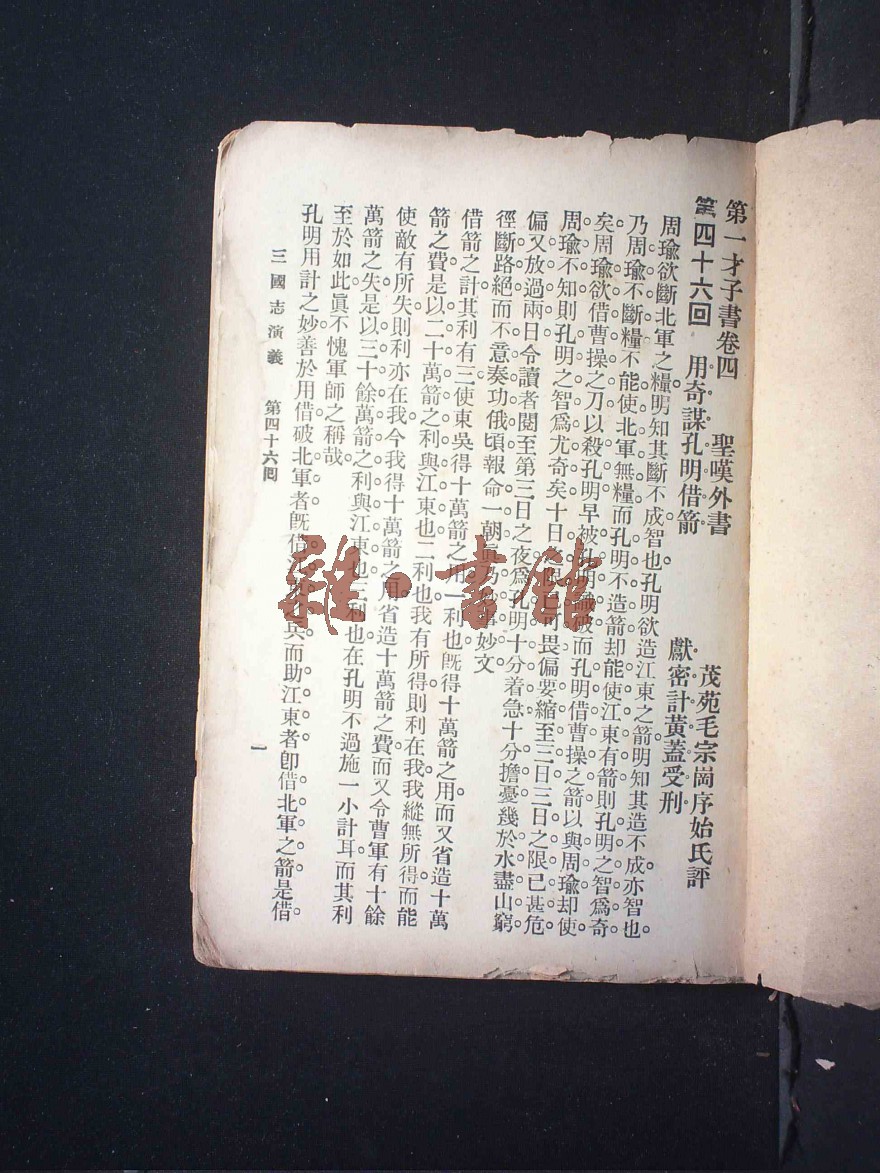 第一才子書卷四　聖嘆外書　茂苑毛宗崗序始氏評
第四十六回　用奇謀孔明借箭　獻密計黃蓋受刑
周瑜欲斷北軍之糧明知其斷不成智也孔明欲造江東之箭明知其造不成亦智也
乃周瑜不斷糧不能使北軍無糧而孔明不造箭却能使江東有箭則孔明之智爲奇
矣周瑜欲借曹操之刀以殺孔明早被孔明識破而孔明借曹操之箭以與周瑜却使
周瑜不知則孔明之智爲尤奇矣十日之限已可畏偏要縮至三日三日之限已甚危
偏又放過兩日令讀者閱至第三日之夜爲孔明十分着急十分擔憂幾於水盡山窮
徑斷路絕而不意奏功俄頃報命一朝眞乃妙事妙文
借箭之計其利有三使東吳得十萬箭之用一利也旣得十萬箭之用而又省造十萬
箭之費是以二十萬箭之利與江東也二利也我有所得則利在我我縱無所得而能
使敵有所失則利亦在我今我得十萬箭之用省造十萬箭之費而又令曹軍有十餘
萬箭之失是以三十餘萬箭之利與江東也三利也在孔明不過施一小計耳而其利
至於如此眞不愧軍師之稱哉
孔明用計之妙善於用借破北軍者旣借江東之兵而助江東者卽借北軍之箭是借
三國志演義　第四十六回　一
雜·書館